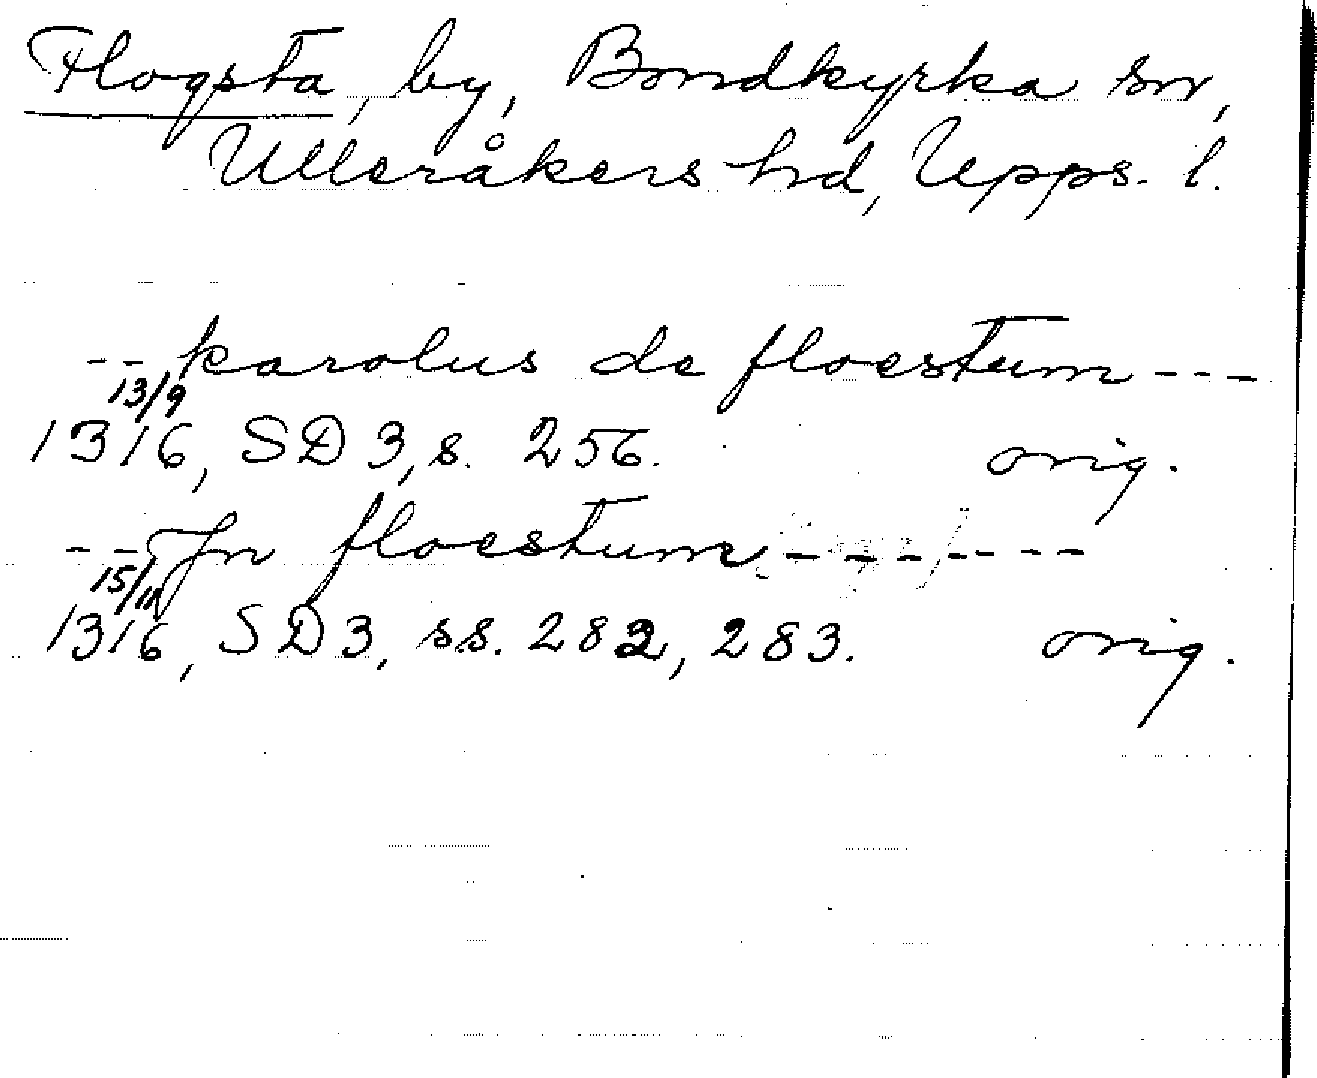 Flogsta, by, Bondkyrka sn,
Ulleråkers hd, Upps. l.
-- karolus de floestum ---
13/9
1316, SD 3, s. 256. orig.
-- Jn floestum -------
15/11
1316, SD 3, ss. 282, 283. orig.